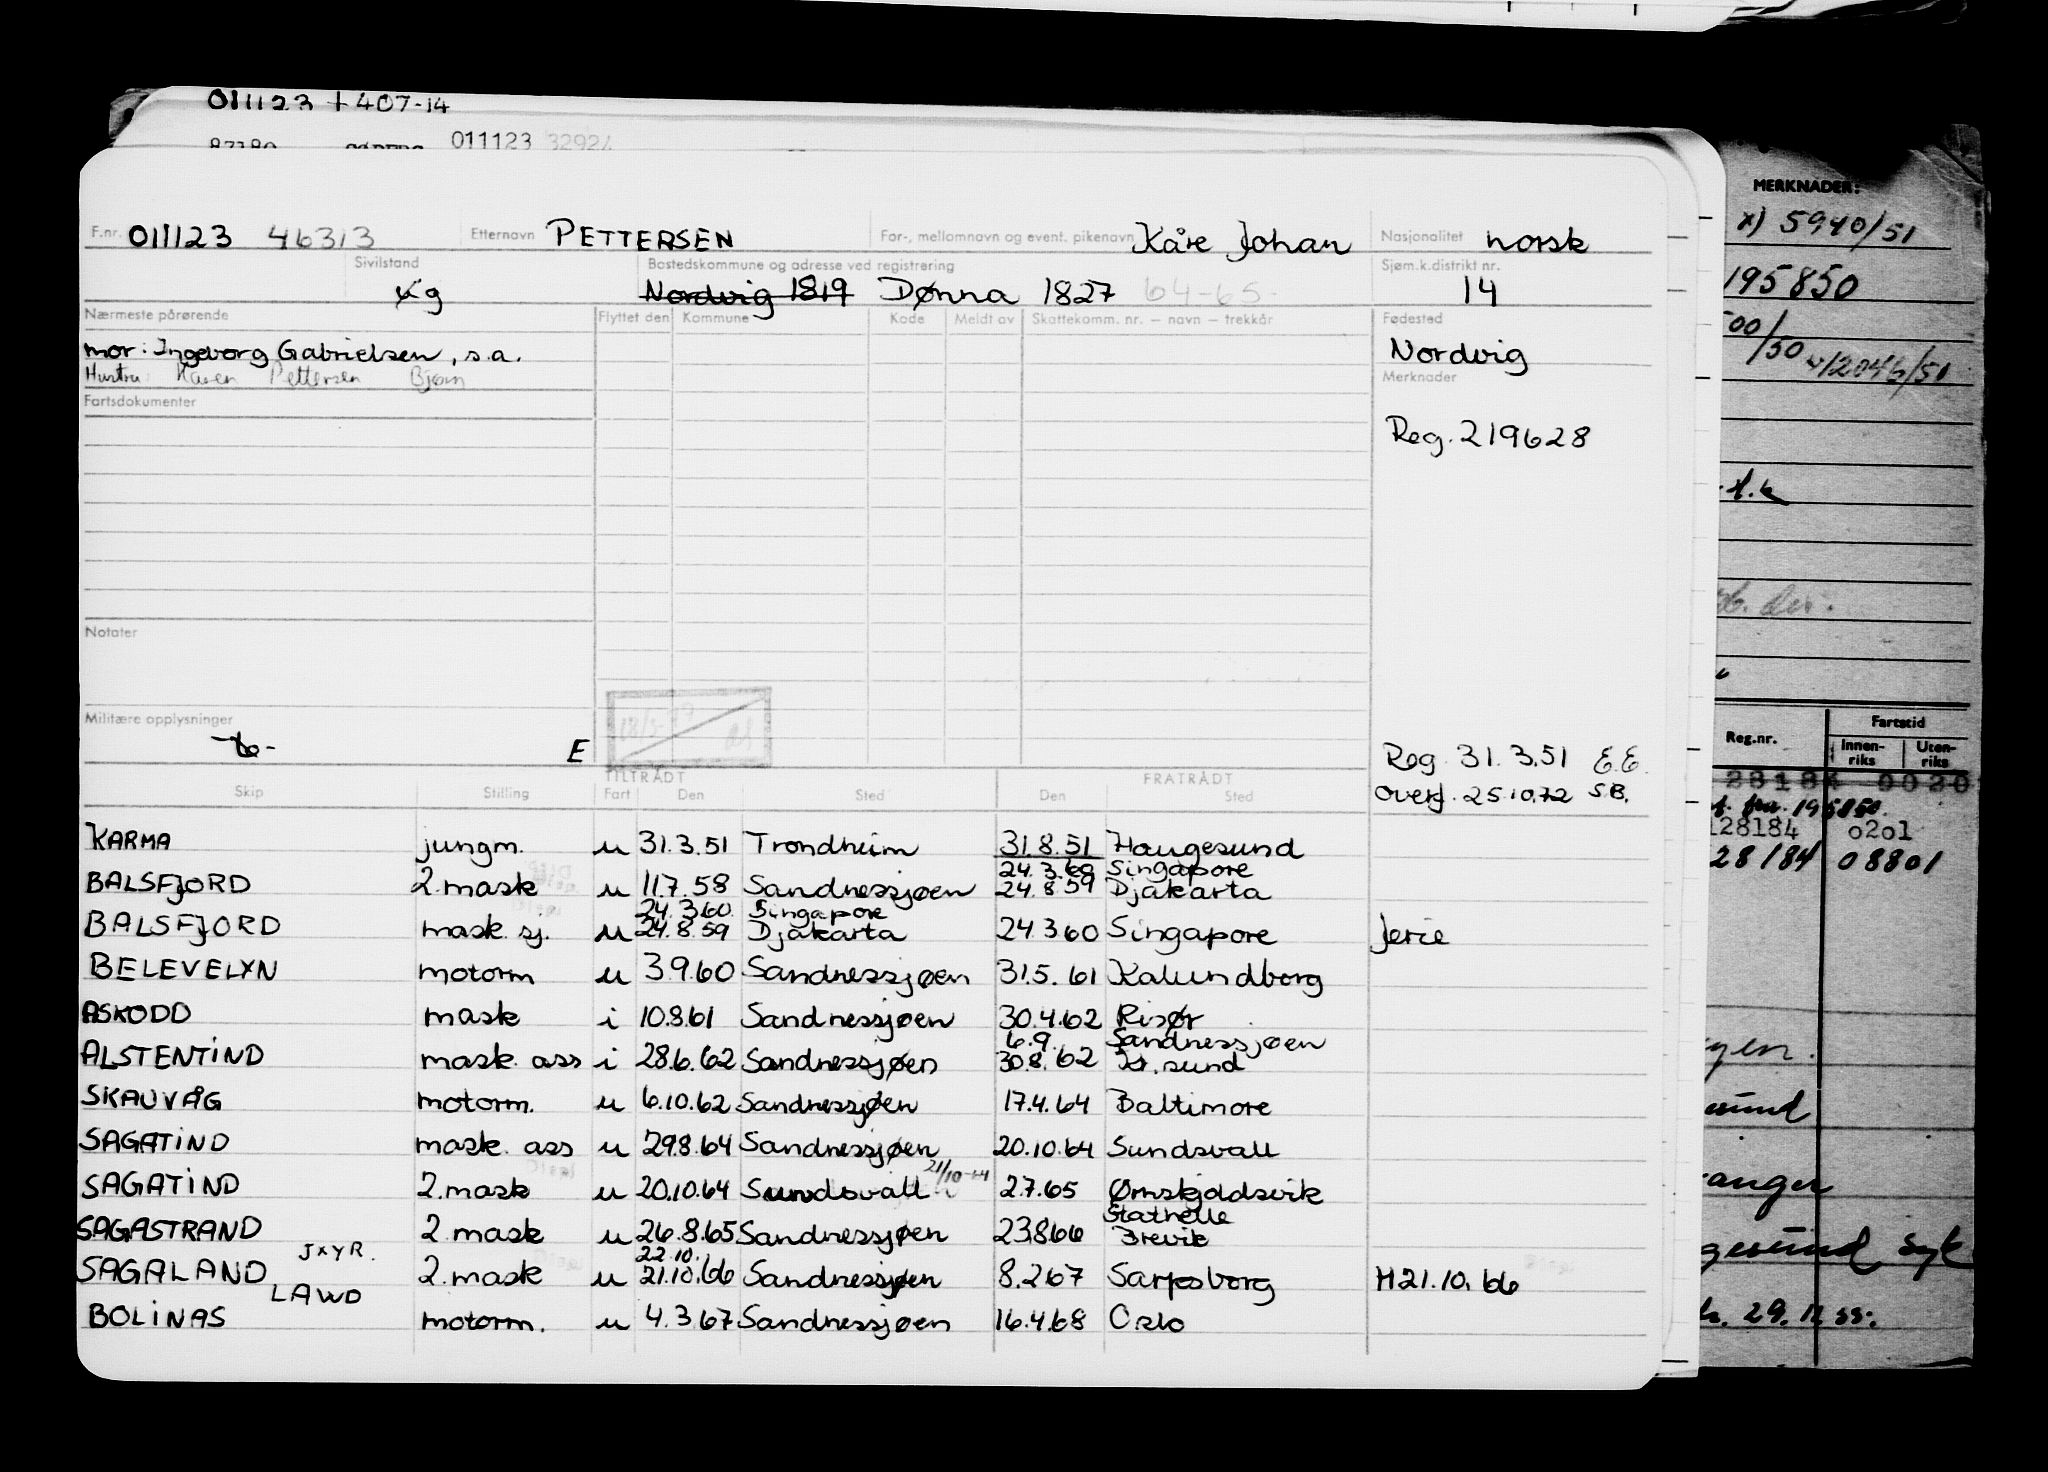 011123 + 407-14
011123 32924
F.nr. 011123 46313 Etternavn PETTERSEN For-, mellomnavn og event. pikenavn Kåre Johan Nasjonalitet norsk
Sivilstand Bostedskommune og adresse ved registrering Sjøm.k.distrikt nr.
g Nordvig 1819 Dønna 1827 64-65- 14
Nærmeste pårørende Flyttet den Kommune Kode Meldt av Skattekomm. nr. — navn — trekkår Fødested
mor: Ingeborg Gabrielsen, s.a. Nordvig
Hustru: Karen Pettersen Bjørn Merknader
Fartsdokumenter
Reg. 219628
Notater
Militære opplysninger
E
Reg. 31.3.51 E.E.
Overf. 25.10.72 S.B.
TILTRÅDT FRATRÅDT
Skip Stilling Fart Den Sted Den Sted
KARMA jungm. u 31.3.51 Trondheim 31.8.51 Haugesund
24.3.60 Singapore
BALSFJORD 2.mask u 11.7.58 Sandnessjøen 24.8.59 Djakarta
24.3.60. Singapore
BALSFJORD mask. sj. u 24.8.59 Djakarta 24.3.60 Singapore Jerie
BELEVELYN motorm u 3.9.60 Sandnessjøen 31.5.61 Kalundborg
ASKODD mask i 10.8.61 Sandnessjøen 30.4.62 Risør
6.9. Sandnessjøen
ALSTENTIND mask. ass i 28.6.62 Sandnessjøen 30.8.62 Kr.sund
SKAUVÅG motorm. u 6.10.62 Sandnessjøen 17.4.64 Baltimore
SAGATIND mask. ass u 29.8.64 Sandnessjøen 20.10.64 Sundsvall
21/10-64
SAGATIND 2.mask u 20.10.64 Sundsvall 2.7.65 Ørnskjoldsvik
Stathelle
SAGASTRAND 2.mask u 26.8.65 Sandnessjøen 23.8.66 Brevik
JXYR. 22.10.
SAGALAND 2.mask u 21.10.66 Sandnessjøen 8.2.67 Sarpsborg H21.10.66
LAWD
BOLINAS motorm. u 4.3.67 Sandnessjøen 16.4.68 Oslo
MERKNADER:
x) 5940/51
195850
/50 2046/51
Reg.nr. Fartstid
Innenriks Utenriks
28184 0020
fra. 195850
128184 0201
28184 08801
29.11.55.